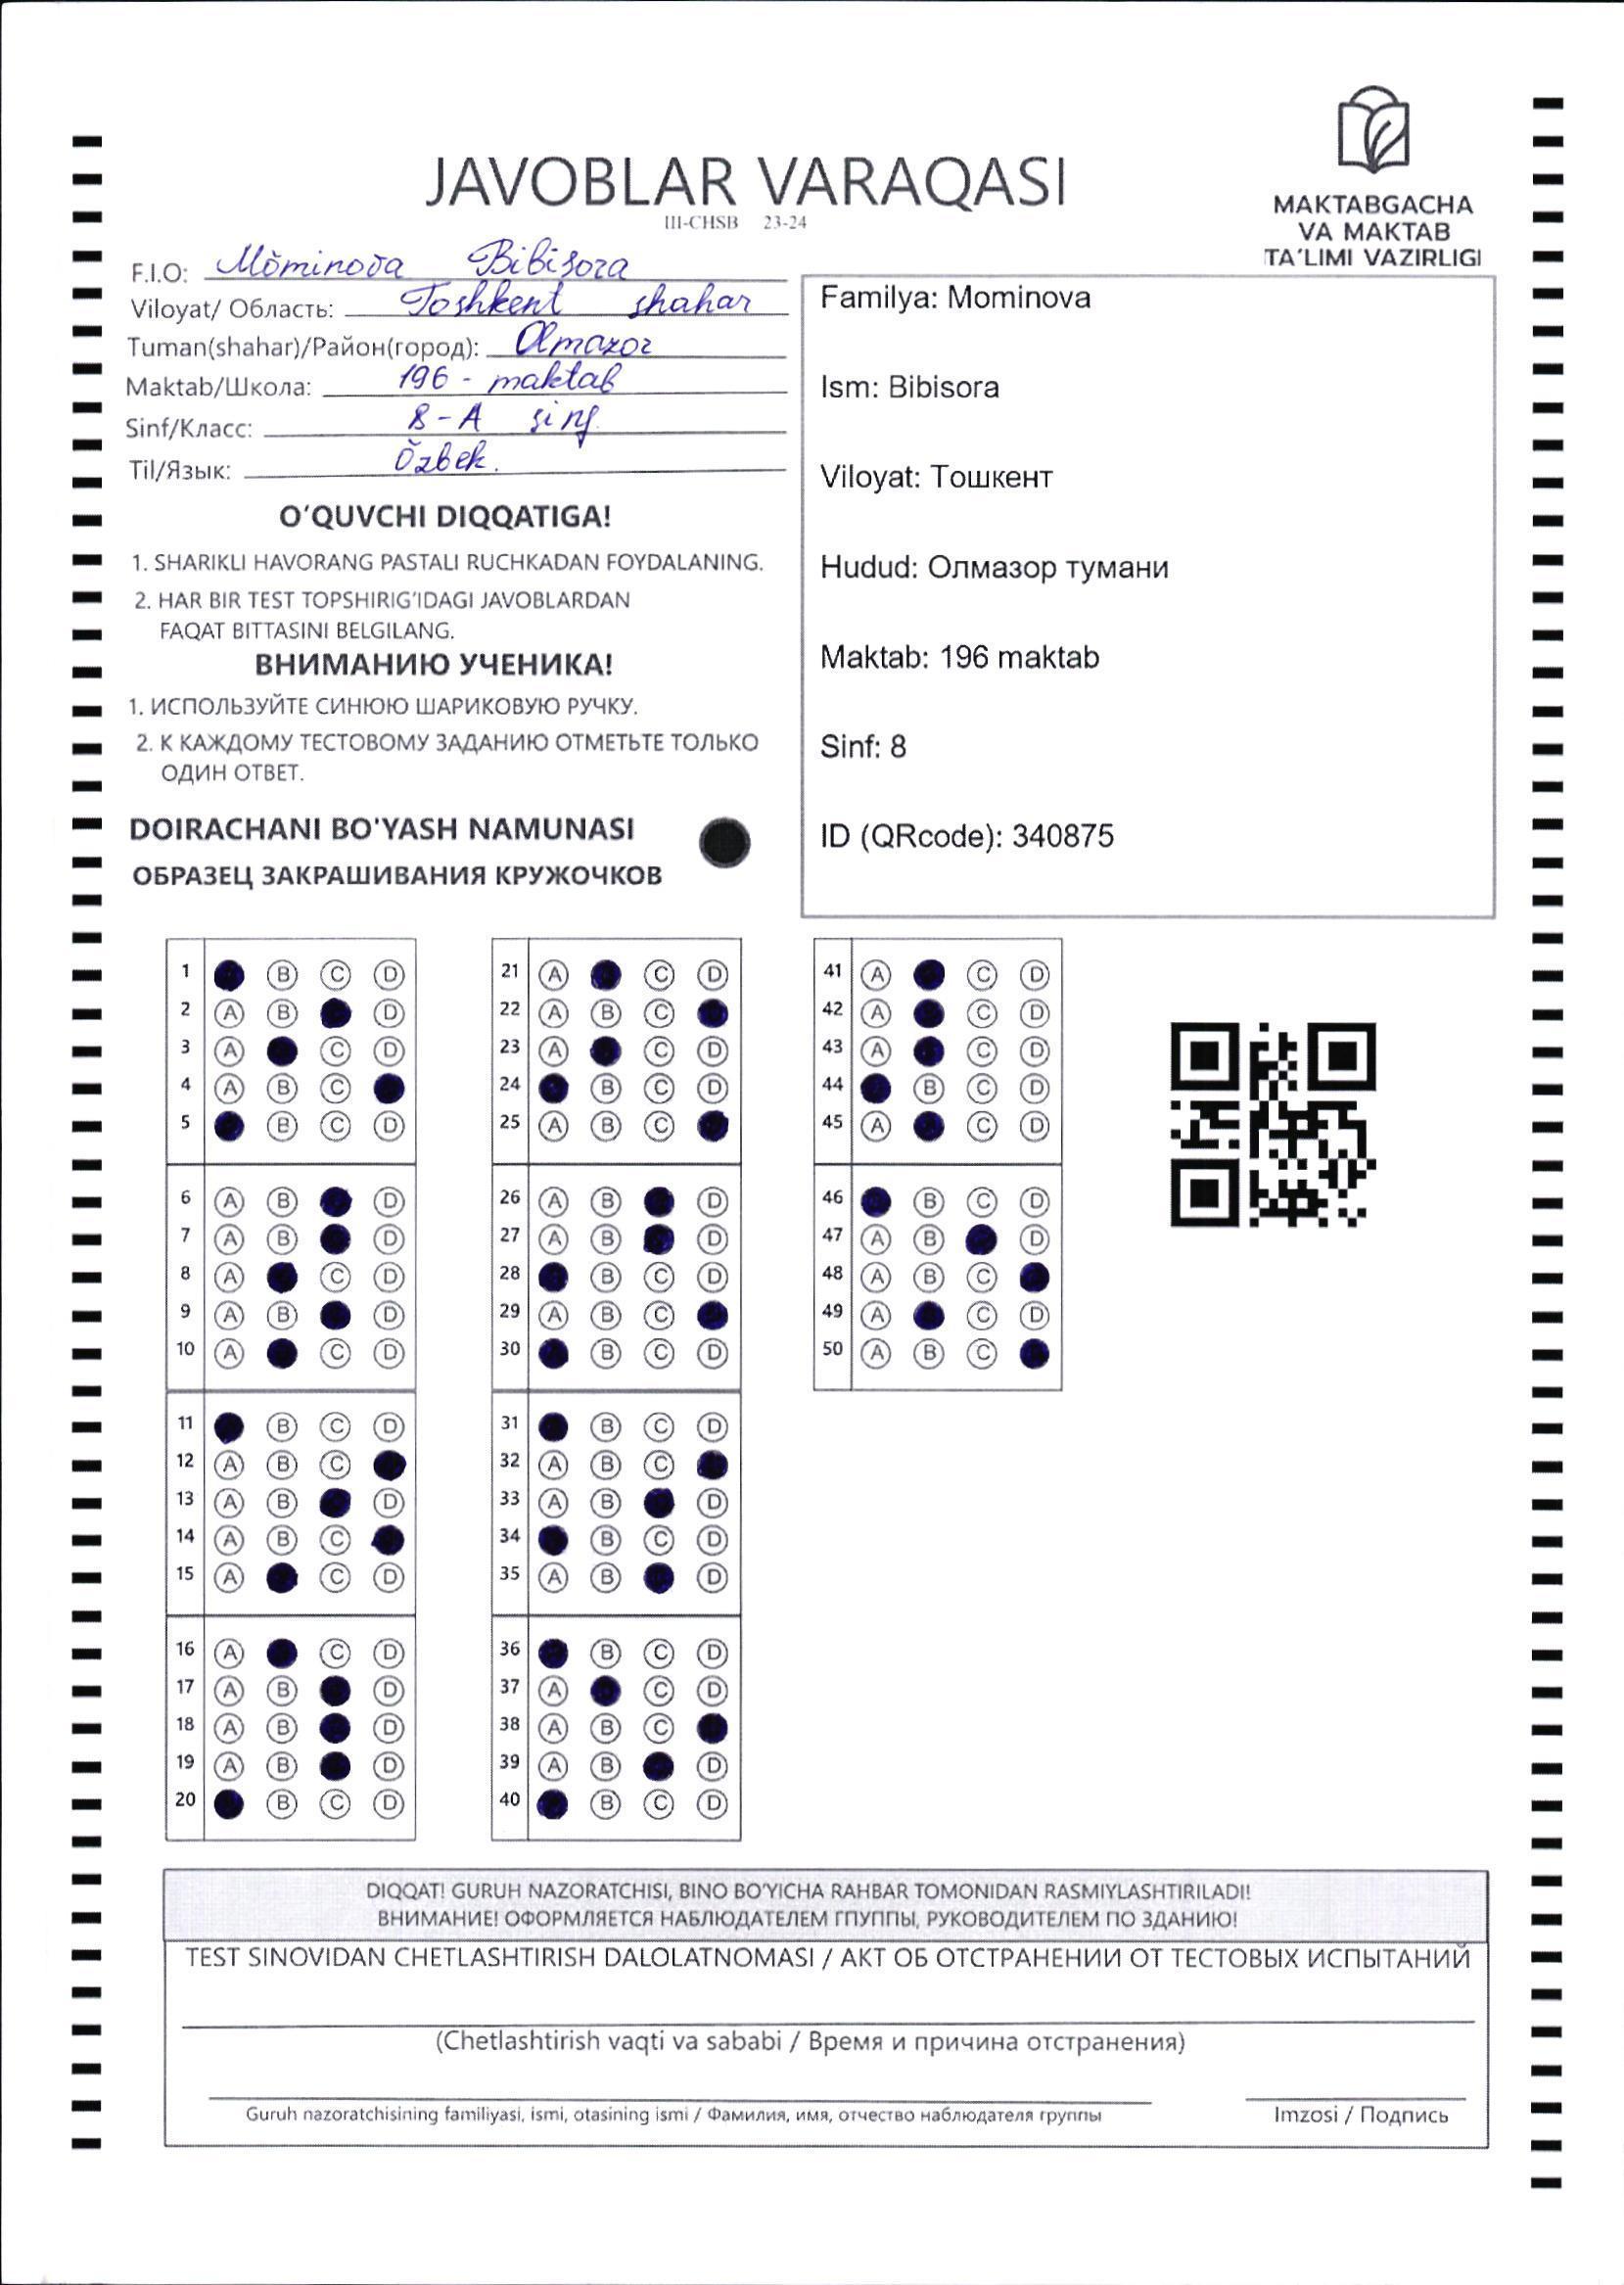 JAVOBLAR VARAQASI
III-CHSB 23-24
MAKTABGACHA
VA MAKTAB
TA'LIMI VAZIRLIGI
F.I.O: Mŏminova Bibisora
Viloyat/ Область: Toshkent shahar
Tuman(shahar)/Район(город): Olmazor
Maktab/Школа: 196 - maktab
Sinf/Класс: 8-A sinf
Til/Язык: Ŏzbek.
Familya: Mominova
Ism: Bibisora
Viloyat: Тошкент
Hudud: Олмазор тумани
Maktab: 196 maktab
Sinf: 8
ID (QRcode): 340875
O'QUVCHI DIQQATIGA!
1. SHARIKLI HAVORANG PASTALI RUCHKADAN FOYDALANING.
2. HAR BIR TEST TOPSHIRIG'IDAGI JAVOBLARDAN
FAQAT BITTASINI BELGILANG.
ВНИМАНИЮ УЧЕНИКА!
1. ИСПОЛЬЗУЙТЕ СИНЮЮ ШАРИКОВУЮ РУЧКУ.
2. К КАЖДОМУ ТЕСТОВОМУ ЗАДАНИЮ ОТМЕТЬТЕ ТОЛЬКО
ОДИН ОТВЕТ.
DOIRACHANI BO'YASH NAMUNASI
ОБРАЗЕЦ ЗАКРАШИВАНИЯ КРУЖОЧКОВ
1 B C D
2 A B D
3 A C D
4 A B C
5 B C D
6 A B D
7 A B D
8 A C D
9 A B D
10 A C D
11 B C D
12 A B C
13 A B D
14 A B C
15 A C D
16 A C D
17 A B D
18 A B D
19 A B D
20 B C D
21 A C D
22 A B C
23 A C D
24 B C D
25 A B C
26 A B D
27 A B D
28 B C D
29 A B C
30 B C D
31 B C D
32 A B C
33 A B D
34 B C D
35 A B D
36 B C D
37 A C D
38 A B C
39 A B D
40 B C D
41 A C D
42 A C D
43 A C D
44 B C D
45 A C D
46 B C D
47 A B D
48 A B C
49 A C D
50 A B C
DIQQAT! GURUH NAZORATCHISI, BINO BO'YICHA RAHBAR TOMONIDAN RASMIYLASHTIRILADI!
ВНИМАНИЕ! ОФОРМЛЯЕТСЯ НАБЛЮДАТЕЛЕМ ГПУППЫ, РУКОВОДИТЕЛЕМ ПО ЗДАНИЮ!
TEST SINOVIDAN CHETLASHTIRISH DALOLATNOMASI / АКТ ОБ ОТСТРАНЕНИИ ОТ ТЕСТОВЫХ ИСПЫТАНИЙ
(Chetlashtirish vaqti va sababi / Время и причина отстранения)
Guruh nazoratchisining familiyasi, ismi, otasining ismi / Фамилия, имя, отчество наблюдателя группы
Imzosi / Подпись